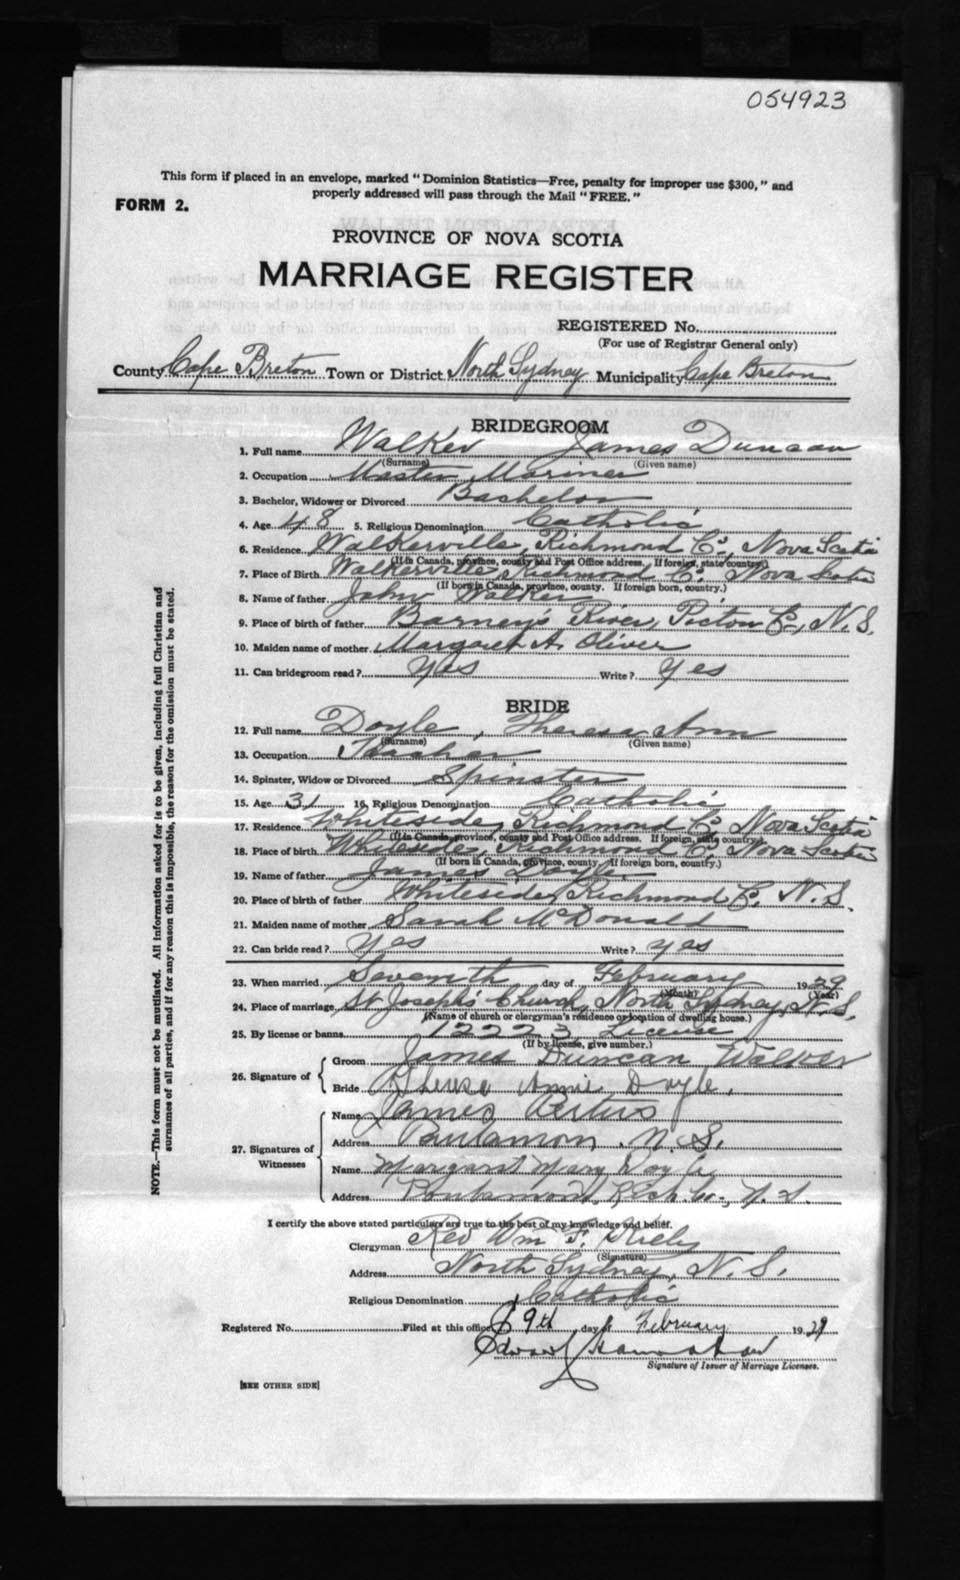 054923
This form if placed in an envelope, marked "Dominion Statistics—Free, penalty for improper use $300," and
properly addressed will pass through the Mail "FREE."
FORM 2.
PROVINCE OF NOVA SCOTIA
MARRIAGE REGISTER
REGISTERED No.
(For use of Registrar General only)
County Cape Breton Town or District North Sydney Municipality Cape Breton
BRIDEGROOM
1. Full name Walker James Duncan
(Surname) (Given name)
2. Occupation Master Mariner
3. Bachelor, Widower or Divorced Bachelor
4. Age 48 5. Religious Denomination Catholic
6. Residence Walkerville, Richmond Co., Nova Scotia
(If in Canada, province, county and Post Office address. If foreign, state country.)
7. Place of Birth Walkerville, Richmond Co. Nova Scotia
(If born in Canada, province, county. If foreign born, country.)
8. Name of father John Walker
9. Place of birth of father Barney's River, Pictou Co., N.S.
10. Maiden name of mother Margaret A. Oliver
11. Can bridegroom read? Yes Write? Yes
BRIDE
12. Full name Doyle, Theresa Ann
(Surname) (Given name)
13. Occupation Teacher
14. Spinster, Widow or Divorced Spinster
15. Age 31 16. Religious Denomination Catholic
17. Residence Whiteside, Richmond Co, Nova Scotia
(If in Canada, province, county and Post Office address. If foreign, state country.)
18. Place of birth Whiteside, Richmond Co, Nova Scotia
(If born in Canada, province, county. If foreign born, country.)
19. Name of father James Doyle
20. Place of birth of father Whiteside, Richmond Co. N.S.
21. Maiden name of mother Sarah McDonald
22. Can bride read? Yes Write? Yes
23. When married Seventh day of February 1929
(Month) (Year)
24. Place of marriage St Joseph's Church, North Sydney, N.S.
(Name of church or clergyman's residence or location of dwelling house.)
25. By license or banns 12223 License
(If by license, give number.)
26. Signature of
Groom James Duncan Walker
Bride Theresa Annie Doyle.
27. Signatures of Witnesses
Name James
Address N.S.
Name Margaret Mary Doyle
Address Rich. Co., N.S.
I certify the above stated particulars are true to the best of my knowledge and belief.
Clergyman Rev Wm F. Kiely
(Signature)
Address North Sydney, N.S.
Religious Denomination Catholic
Registered No. Filed at this office 9th day of February 1929
Edward
Signature of Issuer of Marriage Licenses.
[SEE OTHER SIDE]
NOTE.—This form must not be mutilated. All information asked for is to be given, including full Christian and
surnames of all parties, and if for any reason this is impossible, the reason for the omission must be stated.